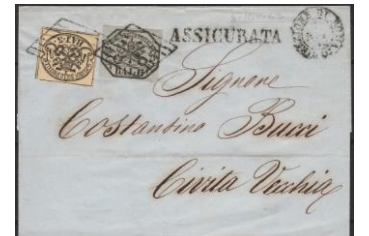 ASSICURATA
Signore
Costantino Bucci
Civita Vecchia